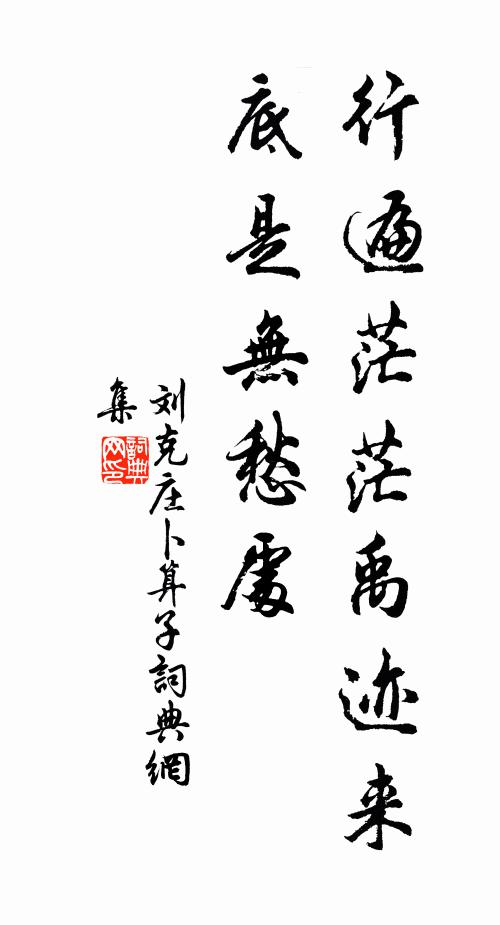 行遍茫茫禹迹来
底是無愁處
刘克庄卜算子詞典網
集
詞典网印